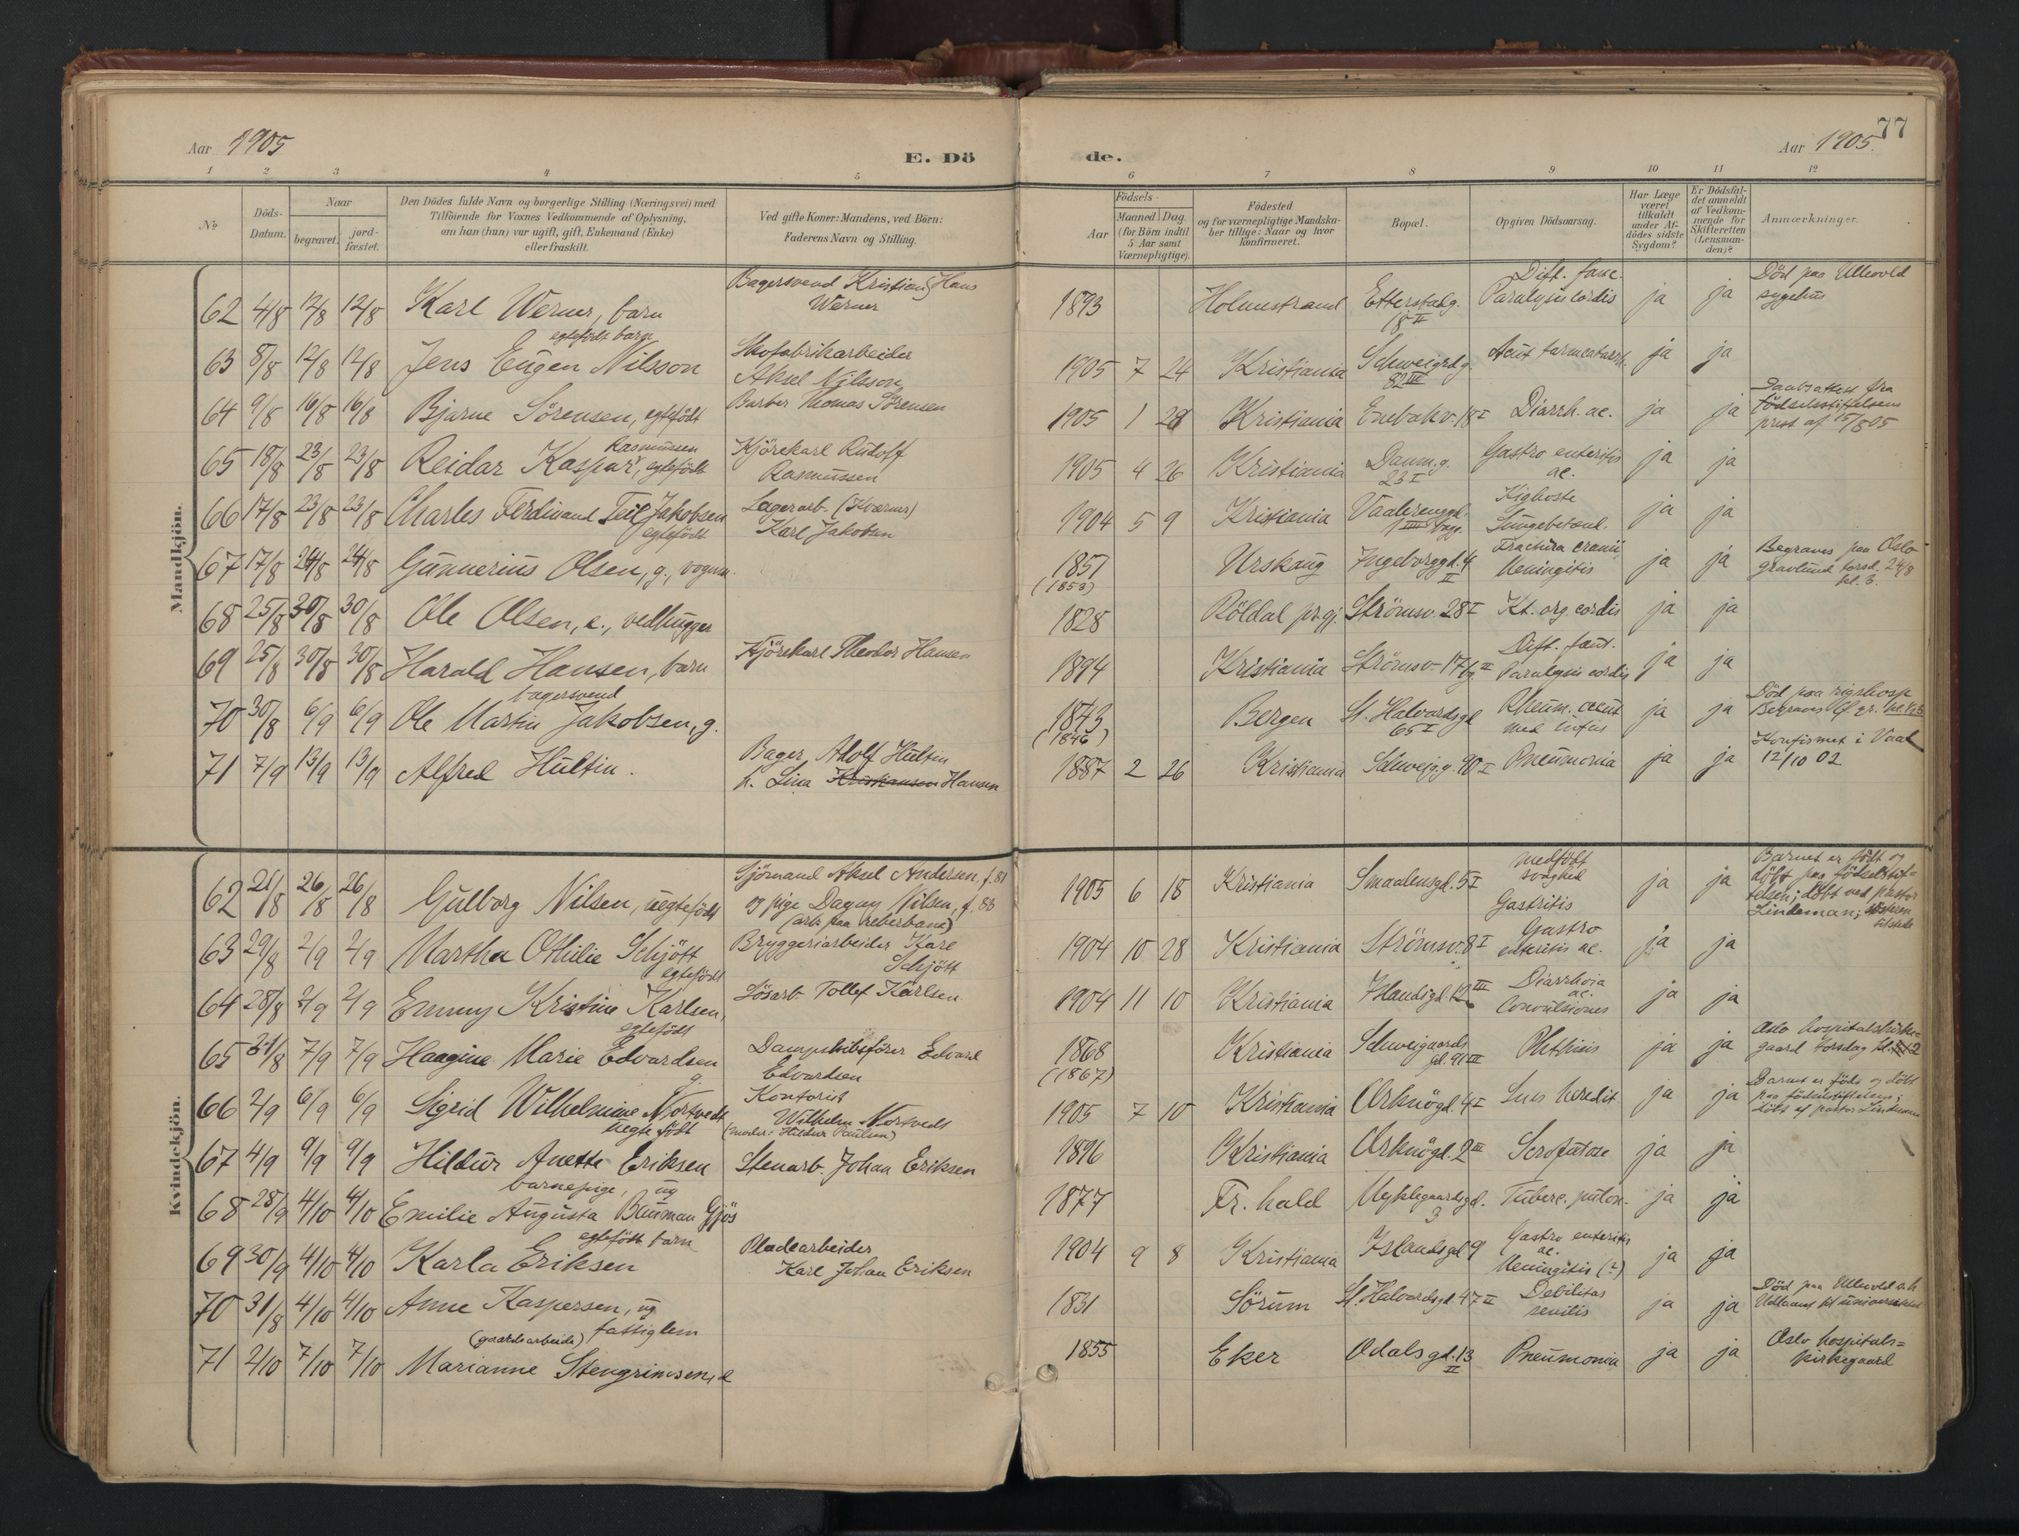 Aar 1905
E. Dö
de.
Aar 1905.
77
1 2 3 4 5 6 7 8 9 10 11 12
№
Döds-Datum.
Naar
begravet.
jord-fæstet.
Den Dödes fulde Navn og borgerlige Stilling (Næringsvei) med
Tilföiende for Voxnes Vedkommende af Oplysning,
om han (hun) var ugift, gift, Enkemand (Enke)
eller fraskilt.
Ved gifte Koner: Mandens, ved Börn:
Faderens Navn og Stilling.
Födsels-
Aar
Maaned Dag
(for Börn indtil
5 Aar samt
Værnepligtige).
Födested
og for værnepligtige Mandska-
ber tillige: Naar og hvor
konfirmeret.
Bopæl.
Opgiven Dödsaarsag.
Har Læge
været
tilkaldt
under Af-
dödes sidste
Sygdom?
Er Dödsfal-
det anmeldt
af Vedkom-
mende for
Skifteretten
(Lensman-
den)?
Anmærkninger.
Mandkjön.
62 4/8 12/8 12/8 Karl Werner, barn Bagersvend Kristian Hans Werner 1893 Holmestrand Etterstadg. 18 II Dift. fauc. Paralysis cordis ja ja Död paa Ullevold sygehus
63 8/8 12/8 12/8 egtefödt barn Jens Eugen Nilsson Skofabrikarbeider Aksel Nilsson 1905 7 24 Kristiania Schweigrdg. 82 III Acut tarmcatarrh. ja ja
64 9/8 16/8 16/8 Bjarne Sörensen, egtefödt Barber Thomas Sörensen 1905 1 28 Kristiania Enebakv. 18 I Diarrh. ac. ja ja Daabsattest fra födselsstiftelsens prest af 15/8 05
65 18/8 23/8 23/8 Reidar Kaspar Rasmussen, egtefödt Kjörekarl Rudolf Rasmussen 1905 4 26 Kristiania Danm.g. 23 I Gastro enteritis ac. ja ja
66 17/8 23/8 23/8 Charles Ferdinand Jakobsen egtefödt Lagerarb. (Kværner) Karl Jakobsen 1904 5 9 Kristiania Vaalerenggd. 1 III Kighoste Lungebetænd. ja ja
67 17/8 24/8 24/8 Gunnerius Olsen, g., vognm. 1851 (1853) Urskaug Ingeborggd. 4 II Fractura cranii Meningitis ja ja Begraves paa Oslo gravlund torsd. 24/8 kl. 3.
68 25/8 30/8 30/8 Ole Olsen, e., vedhugger 1828 Röldal pr.gj. Strömsv. 28 I Kt. org cordis ja ja
69 25/8 30/8 30/8 Harald Hansen, barn Kjörekarl Theodor Hansen 1894 Kristiania Strömsv. 17 II Dift. fauc. Paralysis cordis ja ja
70 30/8 6/9 6/9 bagersvend Ole Martin Jakobsen, g. 1843 (1846) Bergen St. Halvardsgd 65 I Rheum. acut ja ja Död paa rigshosp Begraves
71 7/9 13/9 13/9 Alfred Hultin. Bager Adolf Hultin h. Lina Kristiansen Hansen 1887 2 26 Kristiania Schweigg. 90 I Pneumonia ja ja Konfirmet i Vaal 12/10 02
Kvindekjön.
62 21/8 26/8 26/8 Gulborg Nilsen, uegtefödt Sjömand Aksel Andersen, f. 81 og pige Dagny Nilsen, f. 83 (arb. paa reberbane) 1905 6 18 Kristiania Smaalensgd. 5 I medfödt svaghed Gastritis ja ja Barnet er födt og döbt paa födselsstiftelsen; döbt ved pastor Lindeman;
63 29/8 2/9 2/9 Martha Othilie Schjött egtefödt Bryggeriarbeider Karl Schjött 1904 10 28 Kristiania Strömsv. 8 I Gastro enteritis ac. ja ja
64 28/8 2/9 2/9 Emmy Kristine Karlsen, egtefödt Lösarb. Tollef Karlsen 1904 11 10 Kristiania Islandsgd. III Diarrhoia ac. Convulsiones ja ja
65 31/8 7/9 7/9 Haagine Marie Edvardsen g. Dampskibsförer Edvard Edvardsen 1868 (1867) Kristiania Schweigaards gd. 91 III Phthisis ja ja Oslo hospitalskirkegaard torsdag kl. 2
66 2/9 6/9 6/9 Sigrid Wilhelmine Nortvedt uegtefödt Kontorist Wilhelm Nortvedt (moder: Hildur Paulsen) 1905 7 10 Kristiania Orknögd. 4 I Lues heredit ja ja Barnet er föde og döbt paa födselsstiftelsen; döbt af pastor Lindeman
67 4/9 9/9 9/9 Hildur Anette Eriksen Stenarb. Johan Eriksen 1896 Kristiania Orknögd. 2 III Scrofulose ja ja
68 28/9 4/10 4/10 barnepige, ug Emilie Augusta Buuman Gjös 1877 Fr. hald Nyklegaardsgd. 3 Tuberc. pulm. ja ja
69 30/9 4/10 4/10 egtefödt barn Karla Eriksen Pladearbeider Karl Johan Eriksen 1904 9 8 Kristiania Islandsgd 9 Gastro enteritis ac. Meningitis (?) ja ja
70 31/8 4/10 4/10 Anne Kaspersen, ug fattiglem 1831 Sörum St. Halvardsgd. 47 II Debilitas senilis ja ja Död paa Ullevold
71 2/10 7/10 7/10 (gaardsarbeide) Marianne Stengrimsen, e 1855 Eker Odalsgd. 13 II Pneumonia ja ja Oslo hospitals=kirkegaard